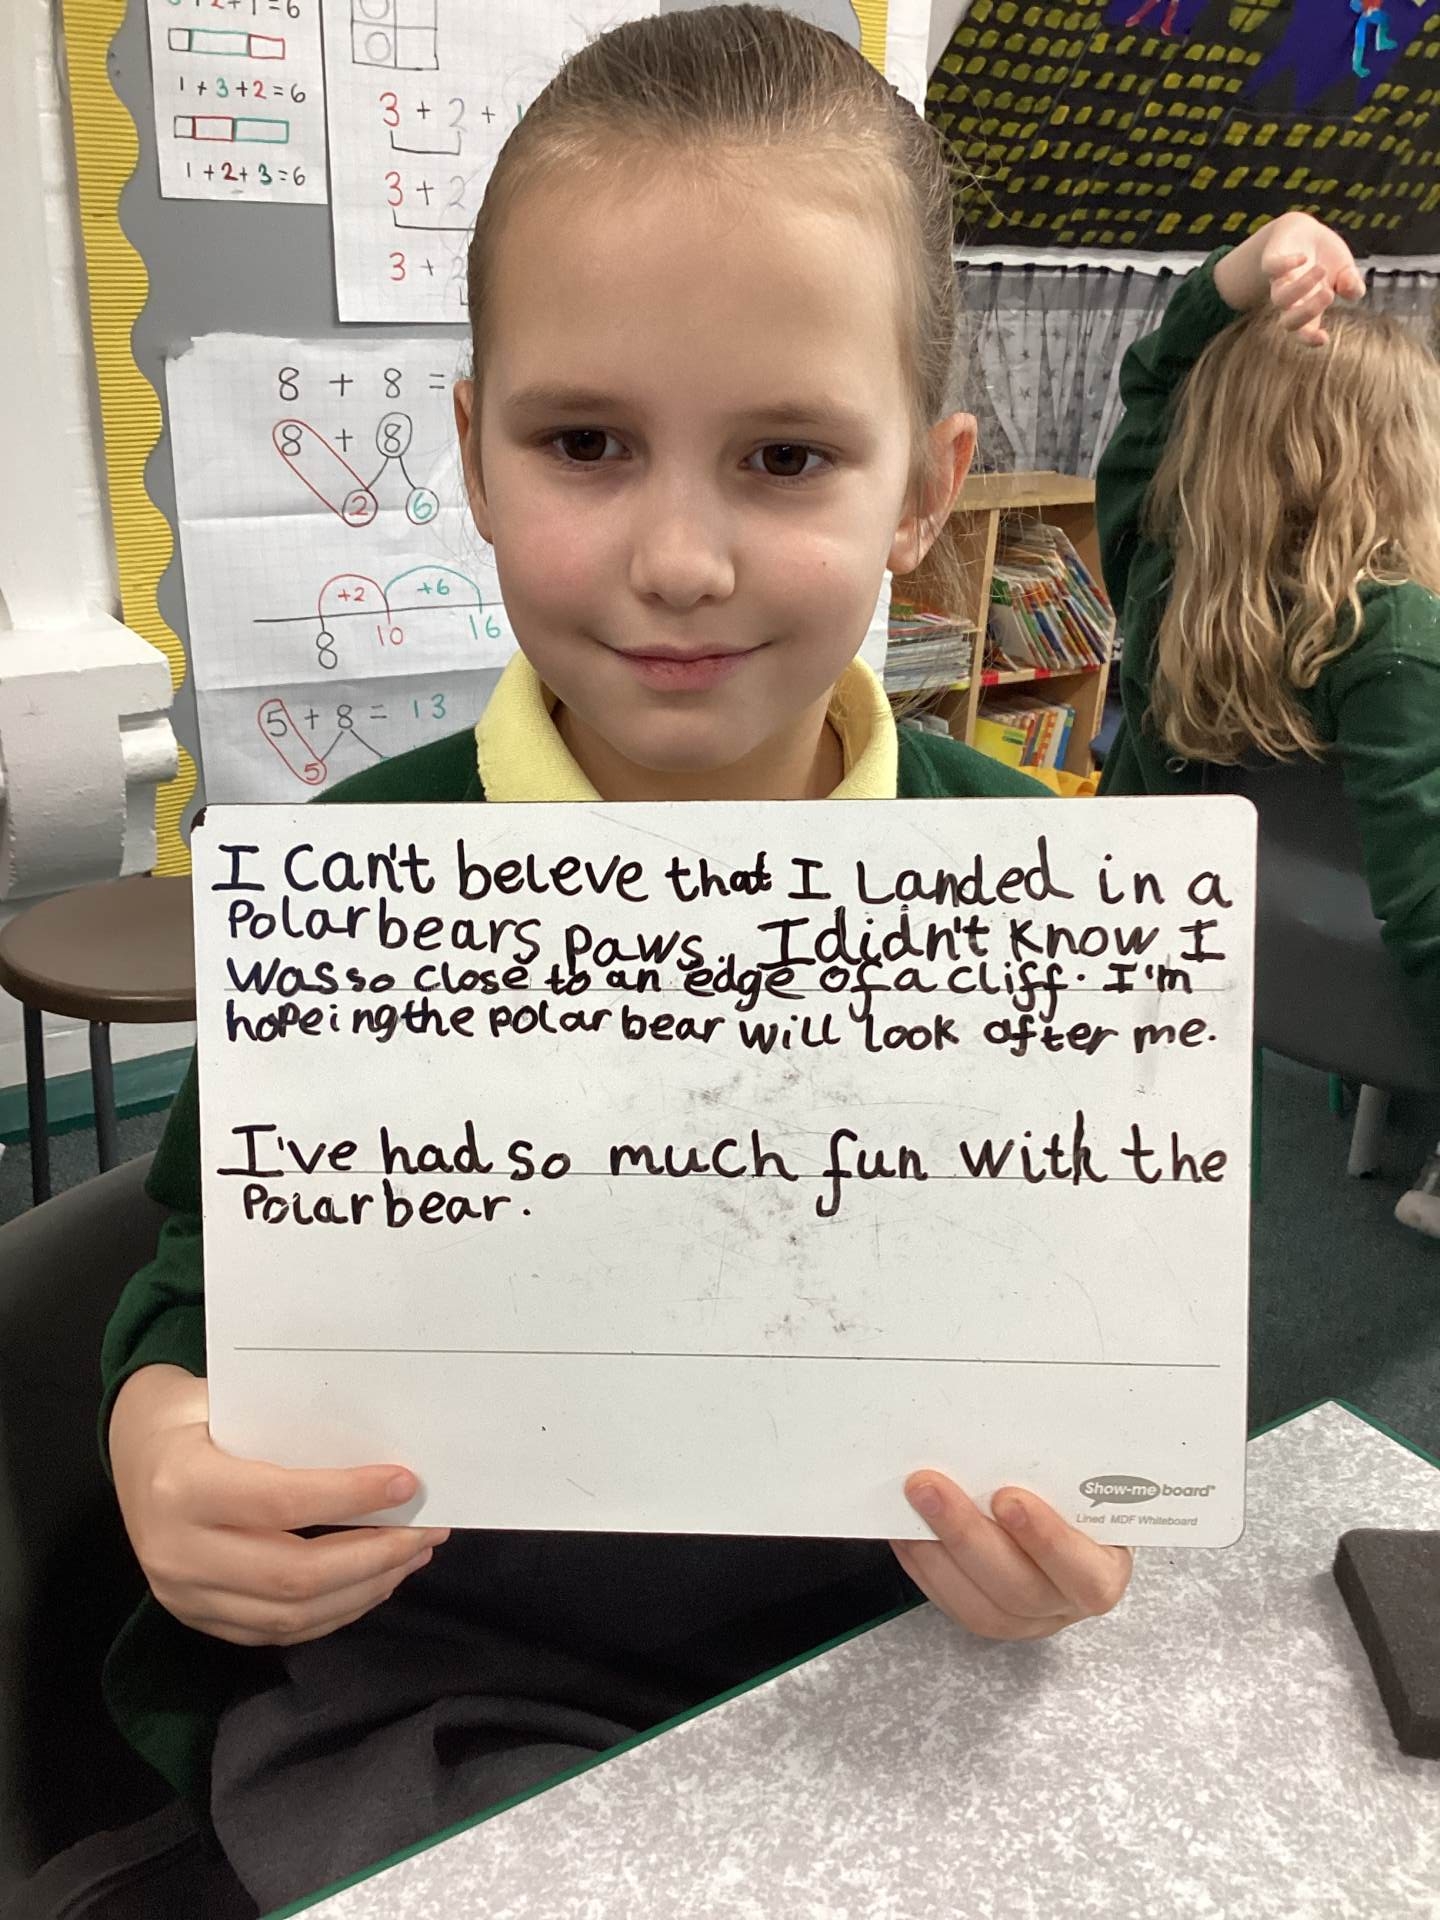 3 + 2 + 1 = 6
1 + 3 + 2 = 6
1 + 2 + 3 = 6
3 + 2 +
3 + 2
3 + 2
8 + 8 =
8 + 8
2 6
+2 +6
8 10 16
5 + 8 = 13
5
I Can't beleve that I Landed in a
Polar bears paws. I didn't know I
was so close to an edge of a cliff. I'm
hopeing the polar bear will look after me.
I've had so much fun with the
Polar bear.
Show-me board
Lined MDF Whiteboard